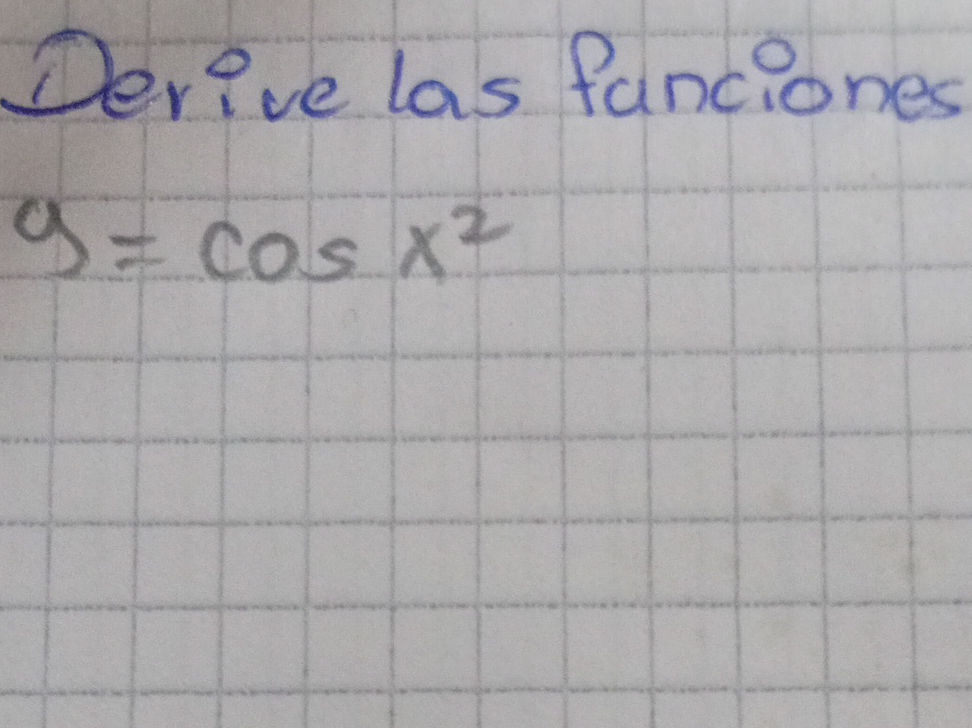 Derive las funciones
y = cos x²